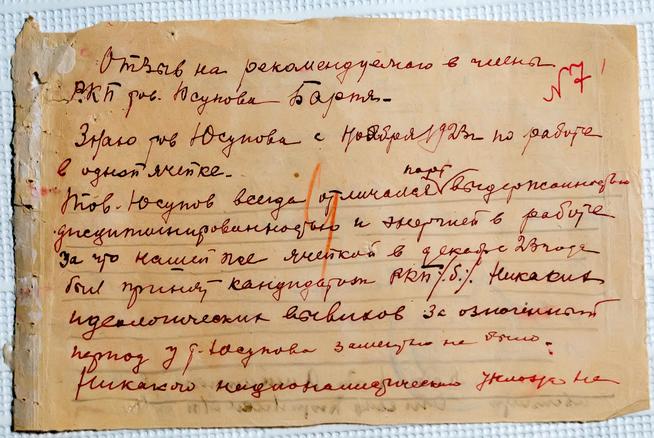 Отзыв на рекомендуемого в члены
№7
РКП тов. Юсупова Барея.
Знаю тов Юсупова с ноября 1923г по работе
в одной ячейке.
парт
Тов. Юсупов всегда отличался выдержанностью
дисциплинированностью и энергией в работе
За что нашей же ячейкой в декабре 23 года
был принят кандидатом РКП/б/. Никаких
идеологических вывихов за означенный
период у т. Юсупова замечено не было.
Никакого националистического уклона не